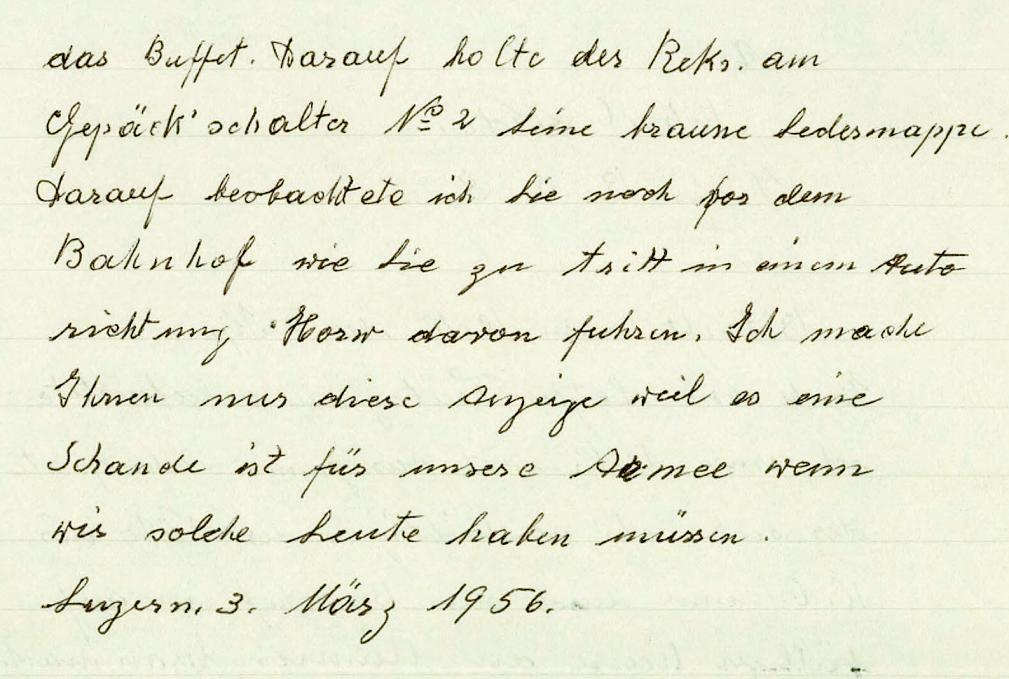 das Buffet. Darauf holte der Rekr. am
Gepäck'schalter № 2 seine braune Ledermappe.
Darauf beobachtete ich Sie noch vor dem
Bahnhof wie Sie zu tritt in einem Auto
richtung Horw davon fuhren. Ich mache
Ihnen nur diese Anzeige weil es eine
Schande ist für unsere Armee wenn
wir solche Leute haben müssen.
Luzern, 3. März 1956.